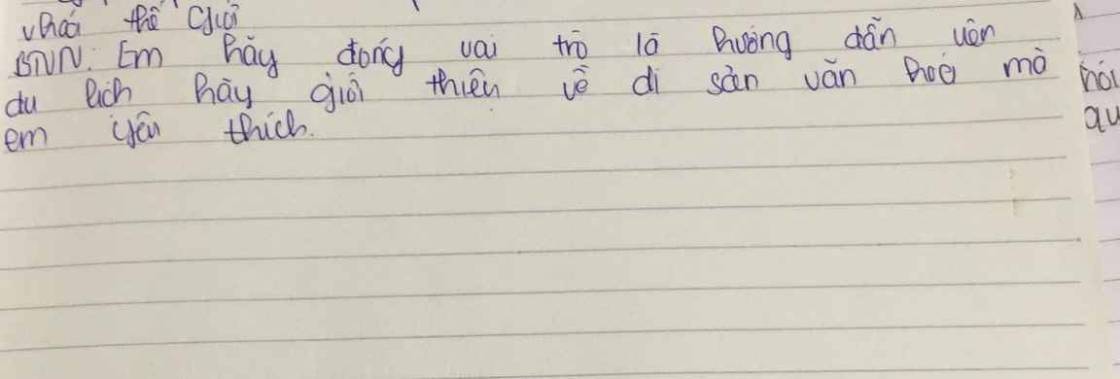 thế giới
BTVN: Em hãy đóng vai trò là hướng dẫn viên
du lịch hãy giới thiệu về di sản văn hoá mà
em yêu thích.